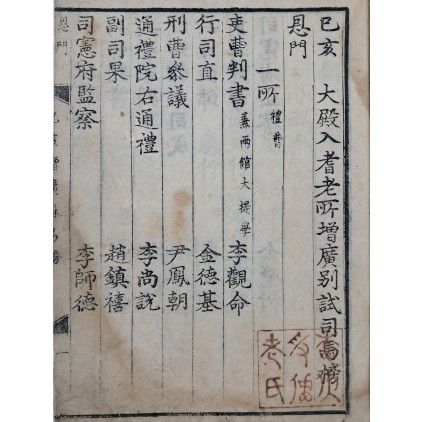 己亥 大殿入耆老所增廣別試司馬榜
恩門
一所 禮曹
吏曹判書 兼兩館大提學 李觀命
行司直 金德基
刑曹參議 尹鳳朝
通禮院右通禮 李尚說
副司果 趙鎮禧
司憲府監察 李師德
恩門 己亥增廣司馬榜 一